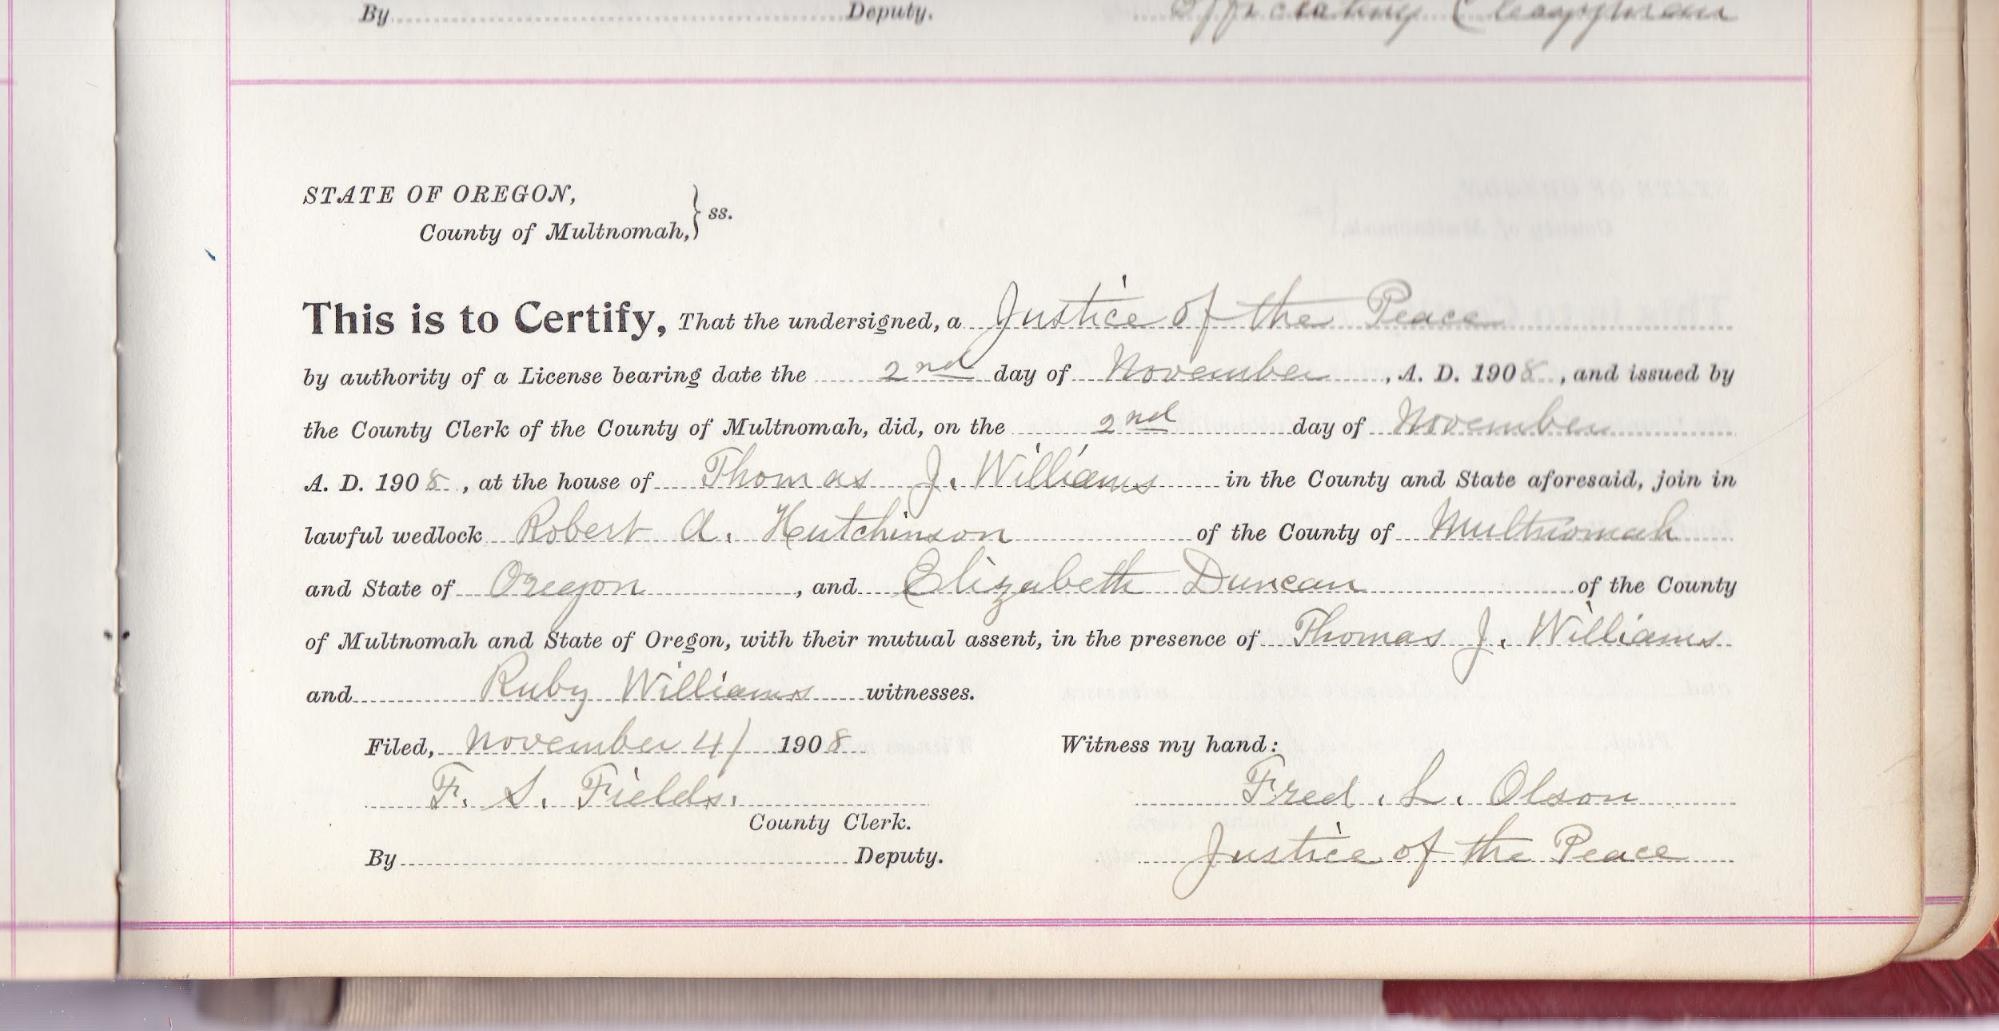 By Deputy. Officiating Clergyman
STATE OF OREGON,
County of Multnomah, } ss.
This is to Certify, That the undersigned, a Justice of the Peace
by authority of a License bearing date the 2nd day of November, A. D. 1908, and issued by
the County Clerk of the County of Multnomah, did, on the 2nd day of November
A. D. 1908, at the house of Thomas J. Williams in the County and State aforesaid, join in
lawful wedlock Robert A. Hutchinson of the County of Multnomah
and State of Oregon, and Elizabeth Duncan of the County
of Multnomah and State of Oregon, with their mutual assent, in the presence of Thomas J. Williams
and Ruby Williams witnesses.
Filed, November 4/ 1908 Witness my hand:
F. S. Fields. Fred. L. Olson
County Clerk.
By Deputy. Justice of the Peace